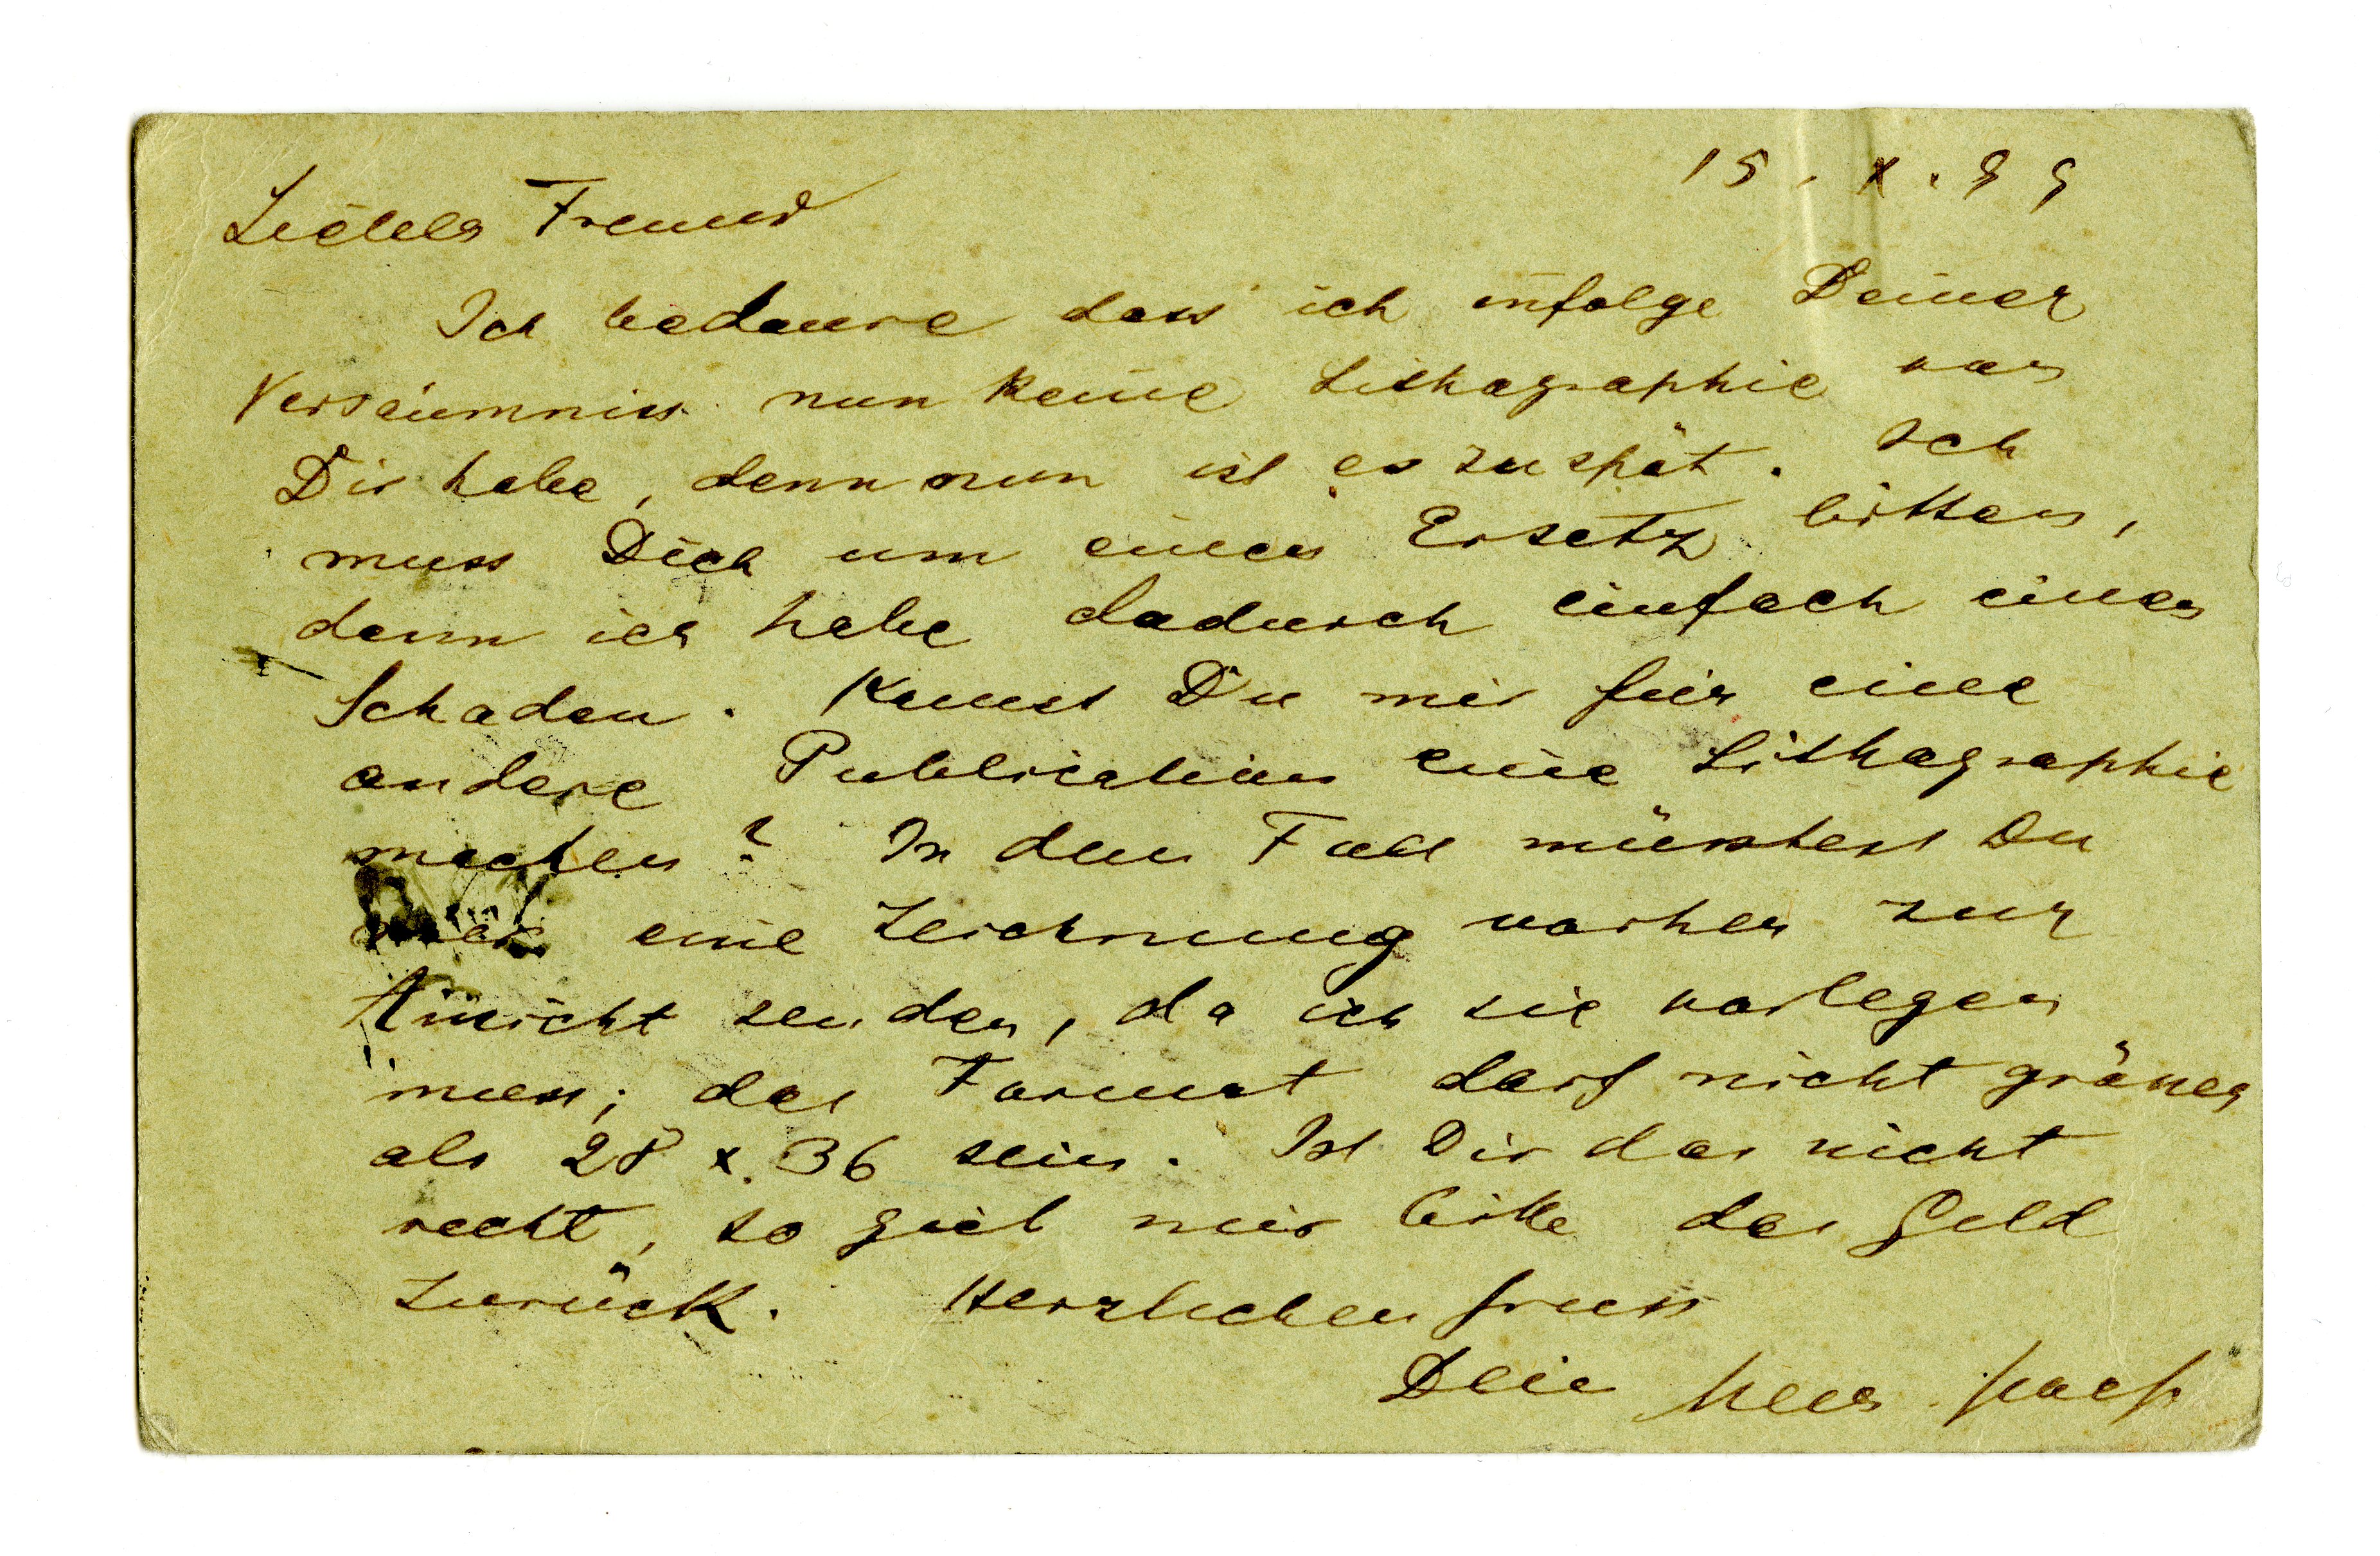 15. X. 99
Liebes Freund
Ich bedaure dass ich infolge Deiner
Versäumniss nun keine Lithographie von
Dir habe, denn nun ist es zu spät. Ich
muss Dich um einen Ersatz bitten,
denn ich habe dadurch einfach einen
Schaden. Kannst Du mir für eine
andere Publication eine Lithographie
machen? In dem Fall müsstest Du
eine Zeichnung vorher zur
Ansicht senden, da ich sie vorlegen
muss; das Format darf nicht grösser
als 28 x 36 sein. Ist Dir das nicht
recht, so gieb mir bitte das Geld
zurück. Herzlichen Gruss
Dein